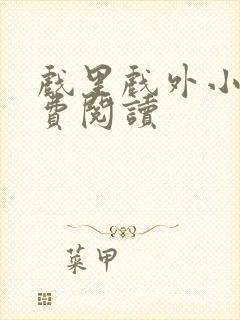 戲里戲外小
費閱讀
菜甲